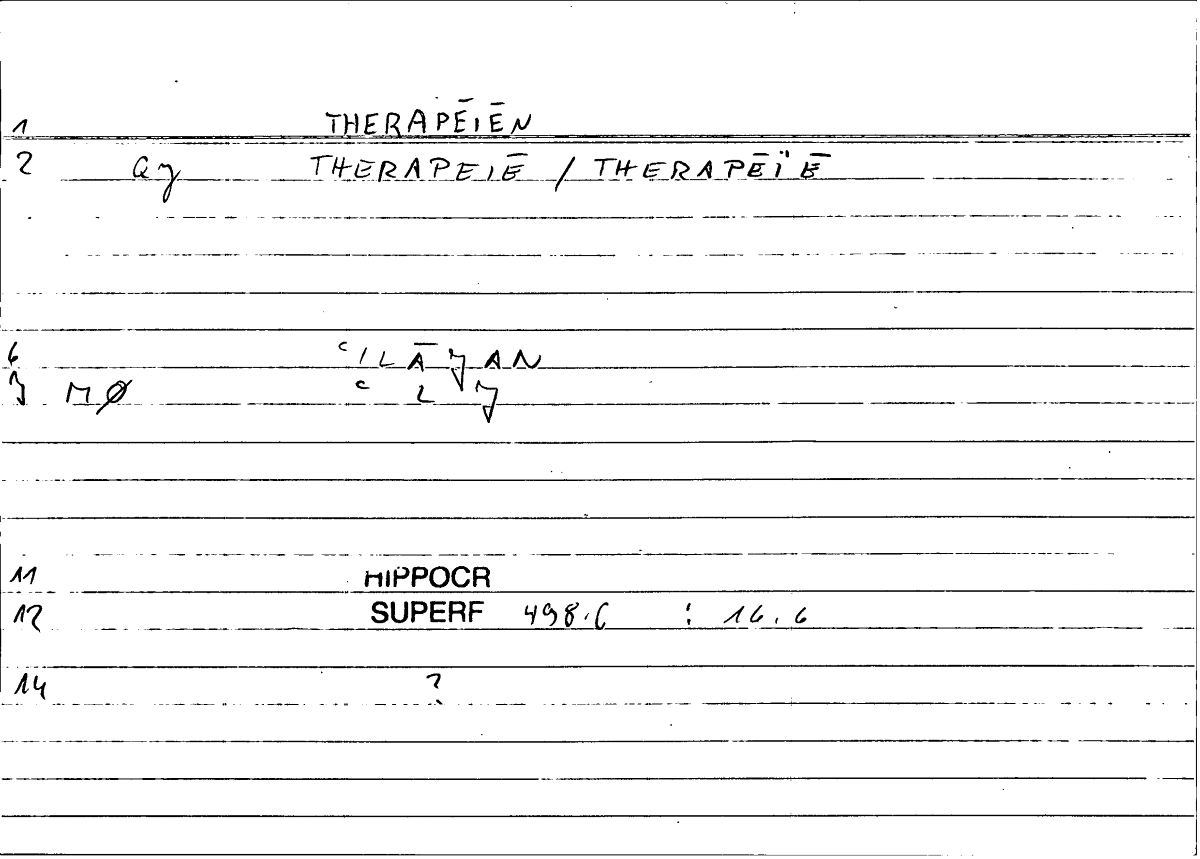 1 THERAPĒIĒN
2 THERAPEIĒ / THERAPĒÏĒ
6
MØ
11 HIPPOCR
12 SUPERF 498.6 : 16.6
14 ?